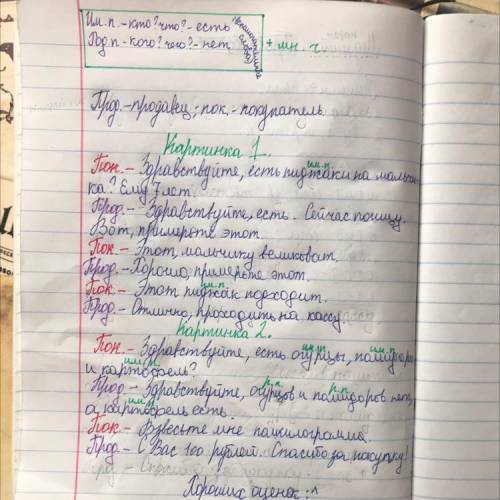 Им.п. - кто? что? - есть
Род.п - кого? чего? - нет
+ мн. ч
Прод. - продавец; пок. - покупатель
Картинка 1.
им.п.
Пок. - Здравствуйте, есть пиджаки на мальчи-
ка? Ему 7 лет.
Прод. - Здравствуйте, есть. Сейчас поищу.
Вот, примерьте этот.
Пок. - Этот, мальчику великоват.
Прод. - Хорошо, примерьте этот.
им.п.
Пок. - Этот пиджак подходит.
Прод. - Отлично, проходить на кассу
Картинка 2.
им.п. им.п.
Пок. - Здравствуйте, есть огурцы, помидоры
им.п.
и картофель?
р.п. р.п.
Прод. - Здравствуйте, огурцов и помидоров нет,
им.п.
а картофель есть.
Пок. - Взвесьте мне полкилограмма.
Прод. - С Вас 100 рублей. Спасибо за покупку!
Хороших оценок :^